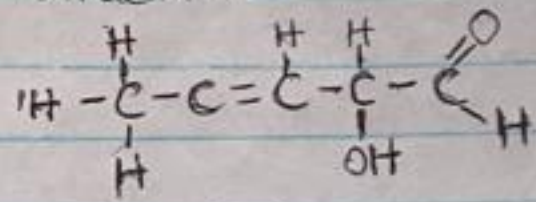 H H H O
H-C-C=C-C-C
H
H OH